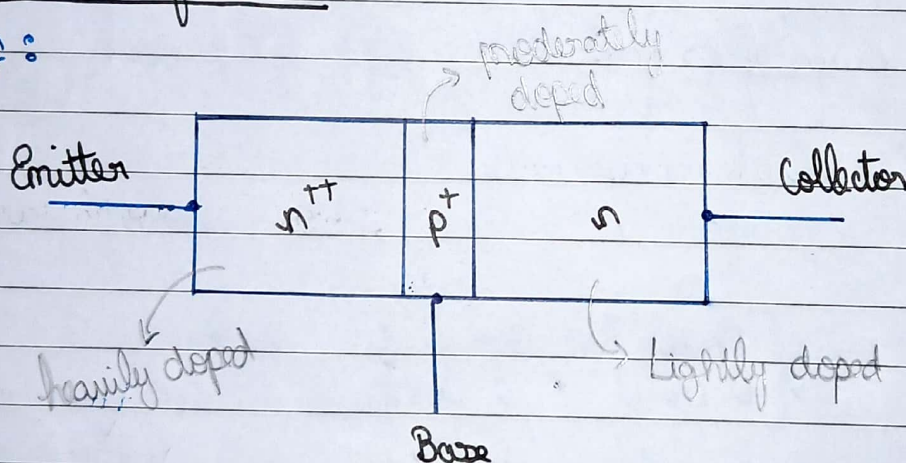 moderately
doped
Emitter
Collector
n++
p+
n
heavily doped
Lightly doped
Base